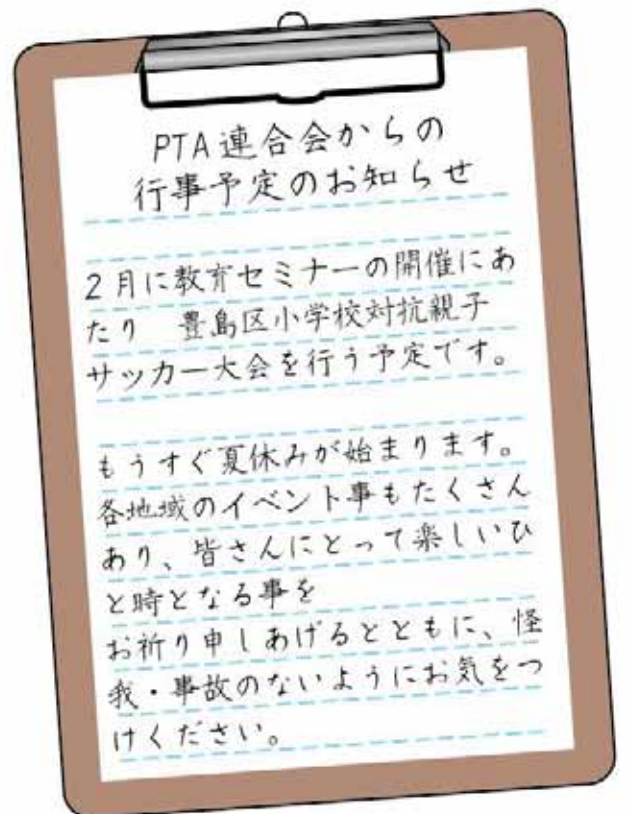 PTA連合会からの
行事予定のお知らせ
2月に教育セミナーの開催にあ
たり　豊島区小学校対抗親子
サッカー大会を行う予定です。
もうすぐ夏休みが始まります。
各地域のイベント事もたくさん
あり、皆さんにとって楽しいひ
と時となる事を
お祈り申しあげるとともに、怪
我・事故のないようにお気をつ
けください。